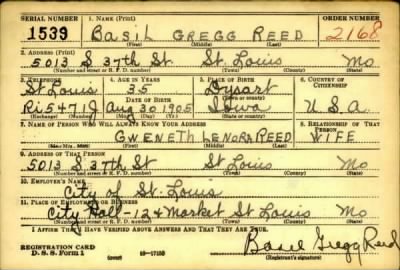 SERIAL NUMBER 1. NAME (Print) ORDER NUMBER
1539 BASIL GREGG REED 2168
(First) (Middle) (Last)
2. ADDRESS (Print)
5013 S 37th St. St. Louis Mo
(Number and street or R. F. D. number) (Town) (County) (State)
3. TELEPHONE 4. AGE IN YEARS 5. PLACE OF BIRTH 6. COUNTRY OF CITIZENSHIP
St Louis 35 Dysart
DATE OF BIRTH (Town or county)
Ri5471J Aug 30 1905 Iowa U.S.A.
(Exchange) (Number) (Mo.) (Day) (Yr.) (State or country)
7. NAME OF PERSON WHO WILL ALWAYS KNOW YOUR ADDRESS 8. RELATIONSHIP OF THAT PERSON
GWENETH LENORA REED WIFE
(Mr., Mrs., Miss) (First) (Middle) (Last)
9. ADDRESS OF THAT PERSON
5013 S 37th St St Louis Mo
(Number and street or R. F. D. number) (Town) (County) (State)
10. EMPLOYER'S NAME
City of St. Louis
11. PLACE OF EMPLOYMENT OR BUSINESS
City Hall - 12 & Market St Louis Mo
(Number and street or R. F. D. number) (Town) (County) (State)
I AFFIRM THAT I HAVE VERIFIED ABOVE ANSWERS AND THAT THEY ARE TRUE.
REGISTRATION CARD
D. S. S. Form 1 (over) 16—17105 Basil Gregg Reed
(Registrant's signature)